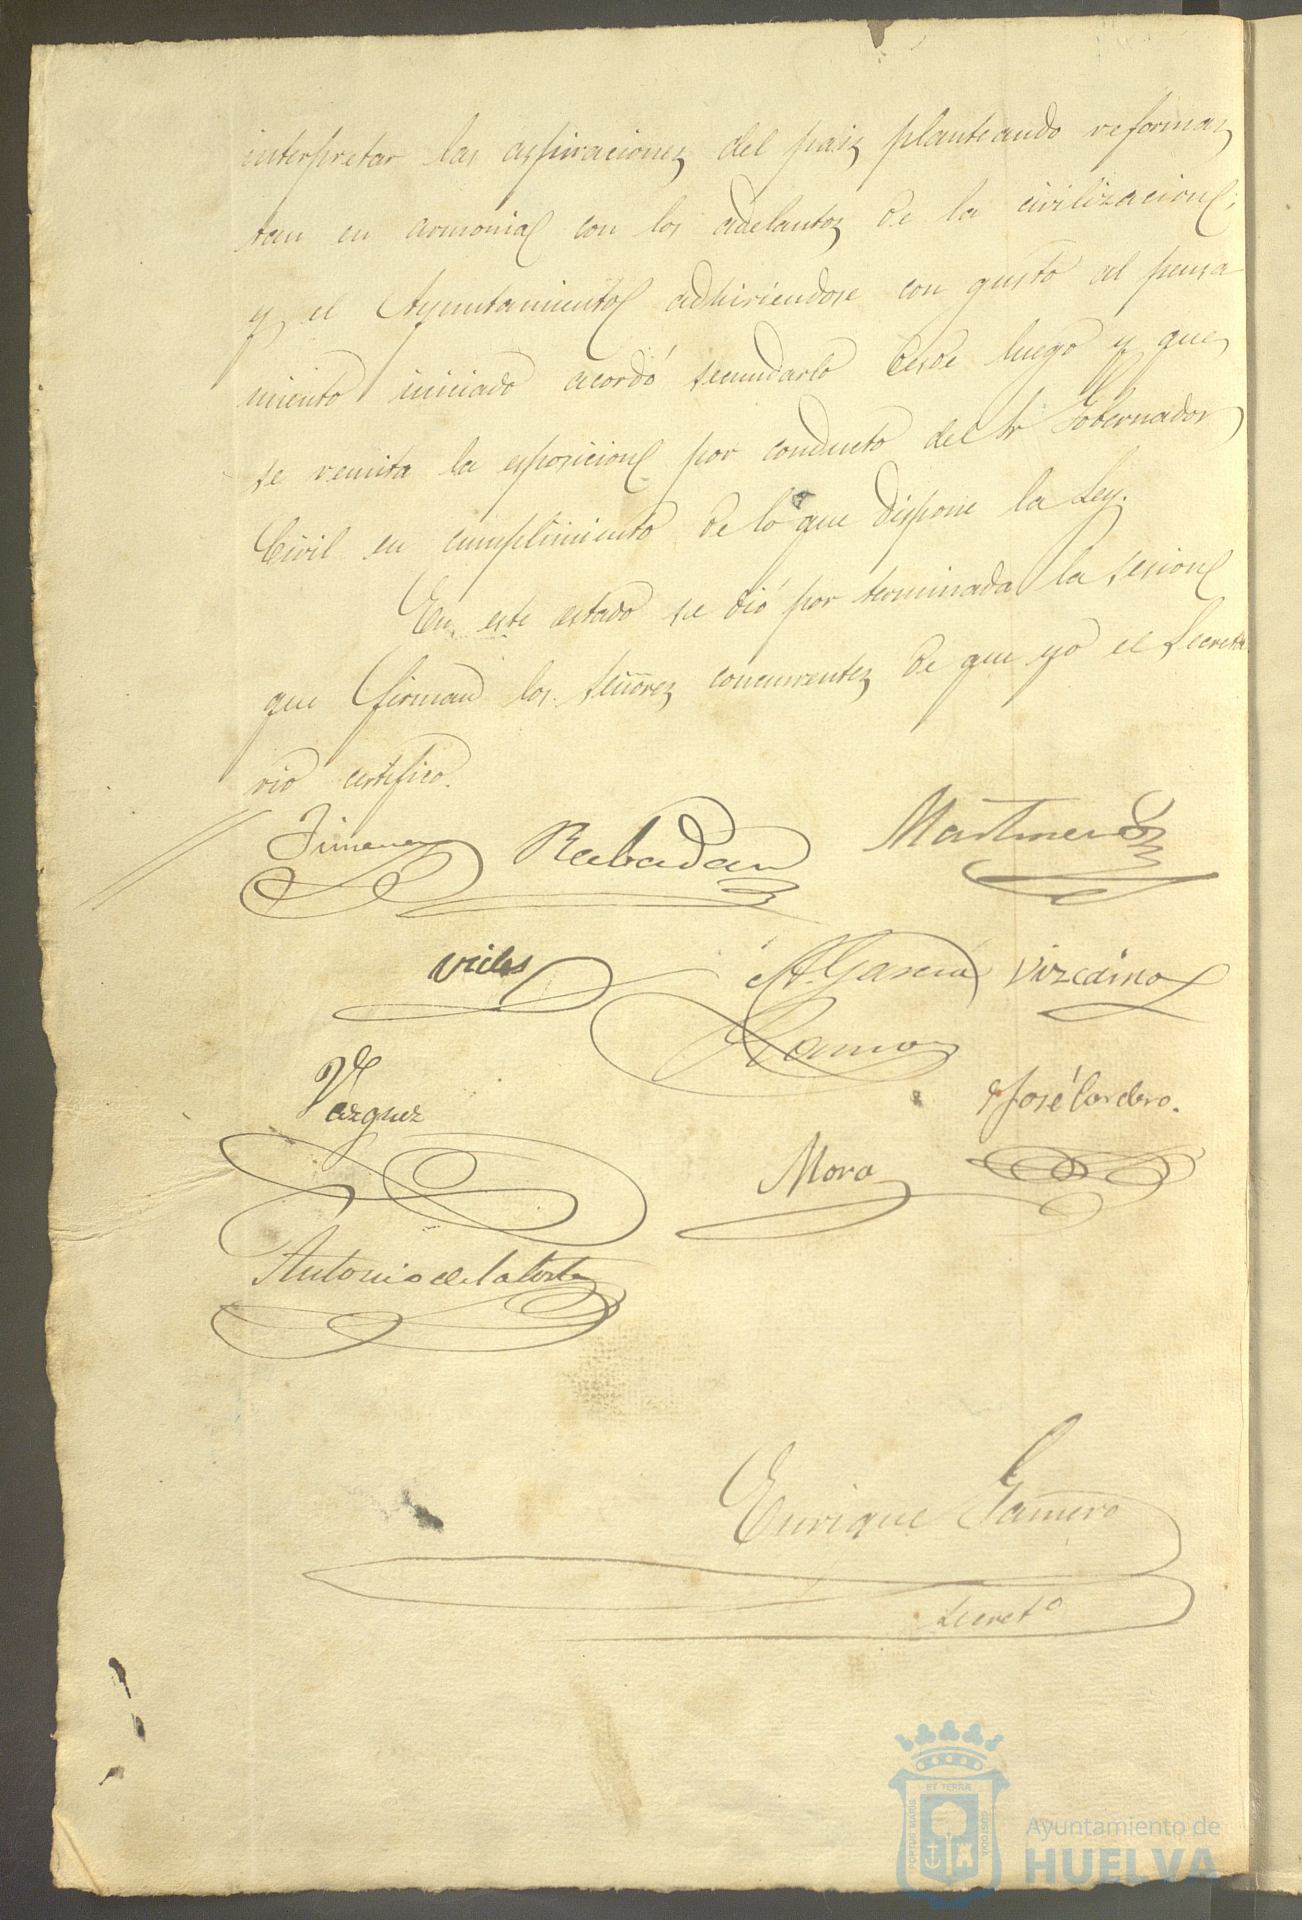 interpretar las aspiraciones del pais planteando reformas
tan en armonia con los adelantos de la civilizacion;
y el Ayuntamiento adhiriendose con gusto al pensa
miento iniciado acordó secundarlo desde luego y que
se remita la esposicion por conducto del Sr Gobernador
Civil en cumplimiento de lo que dispone la Ley.
En este estado se dió por terminada la sesion
que firman los Señores concurrentes de que yo el Secreta
rio certifico.
Jimenez Rabadan Martinez
A. Garcia Vizcaino
Ramos
Vazquez
José Cordero.
Mora
Antonio de la Corte
Enrique Gamero
Secretº
PORTUS MARIS
ET TERRÆ
CUSTODIA
Ayuntamiento de
HUELVA